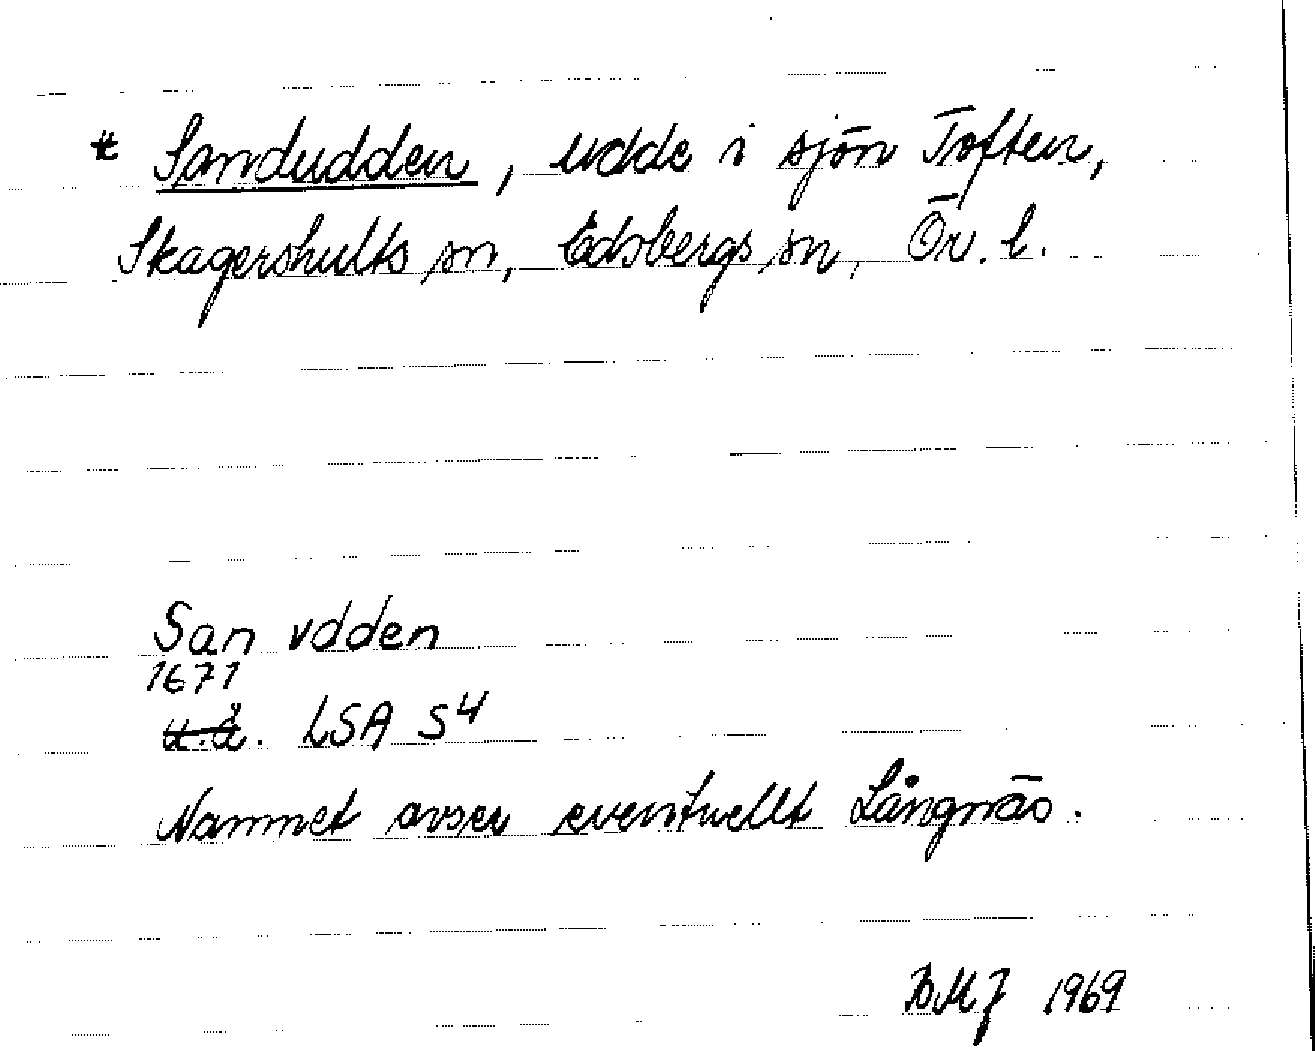 * Sandudden, udde i sjön Toften,
Skagershults sn, Edsbergs sn, Ör. l.
San vdden
1671
u.å. LSA S4
Namnet avser eventuellt Långnäs.
BMJ 1969